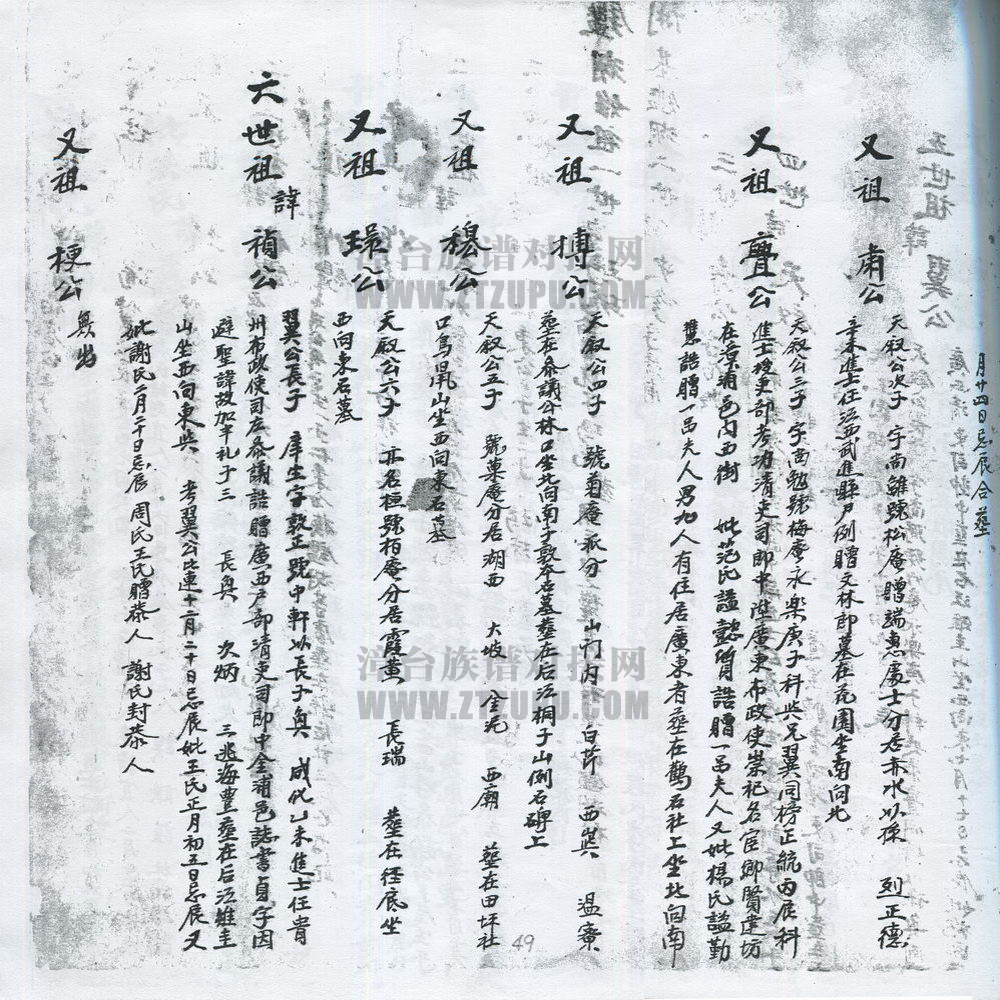 月廿四日忌辰合葬
又祖 肅公
天叙公次子 字尚雝號松庵贈端惠處士分居赤水以孫 烈正德
辛未進士任江西武進縣戶例贈文林郎墓在花園坐南向北
又祖 亹公
天叙公三子 字尚勉號梅庵永樂庚子科與兄翼同榜正統丙辰科
進士授吏部考功清吏司郎中陞廣東布政使崇祀名宦鄉賢建坊
在漳浦邑內西街 妣范氏謚懿質誥贈一品夫人又妣楊氏謚勤
慧誥贈一品夫人男九人有住居廣東者葬在鶴石社上坐北向南
又祖 摶公
天叙公四子 號菊庵派分 山門內 白芹 西與 溫寮
葬在參議公林口坐北向南子敦本名墓葬在后江桐子山例石碑上
又祖 穆公
天叙公五子 號菓庵分居湖西 大坡 后坑 西廟 葬在田坪社
口烏鼡山坐西向東石墓
又祖 璟公
天叙公六子 亦名桓號栢庵分居霞黃 長瑞 葬在徑底坐
西向東石墓
六世祖 諱 禎公
翼公長子 庠生字敦正號中軒以長子奐 成化乙未進士任貴
州布政使司左參議誥贈廣西戶部清吏司郎中金浦邑誌書貞字因
避聖諱故加示礼子三 長奐 次炳 三兆海豊葬在后江雄圭
山坐西向東與 考翼公比連十二月二十日忌辰妣王氏正月初五日忌辰又
妣謝氏二月二十日忌辰 周氏王氏贈恭人 謝氏封恭人
又祖 梗公
無出
49
漳台族谱对接网
WWW.ZTZUPU.COM
漳台族谱对接网
WWW.ZTZUPU.COM